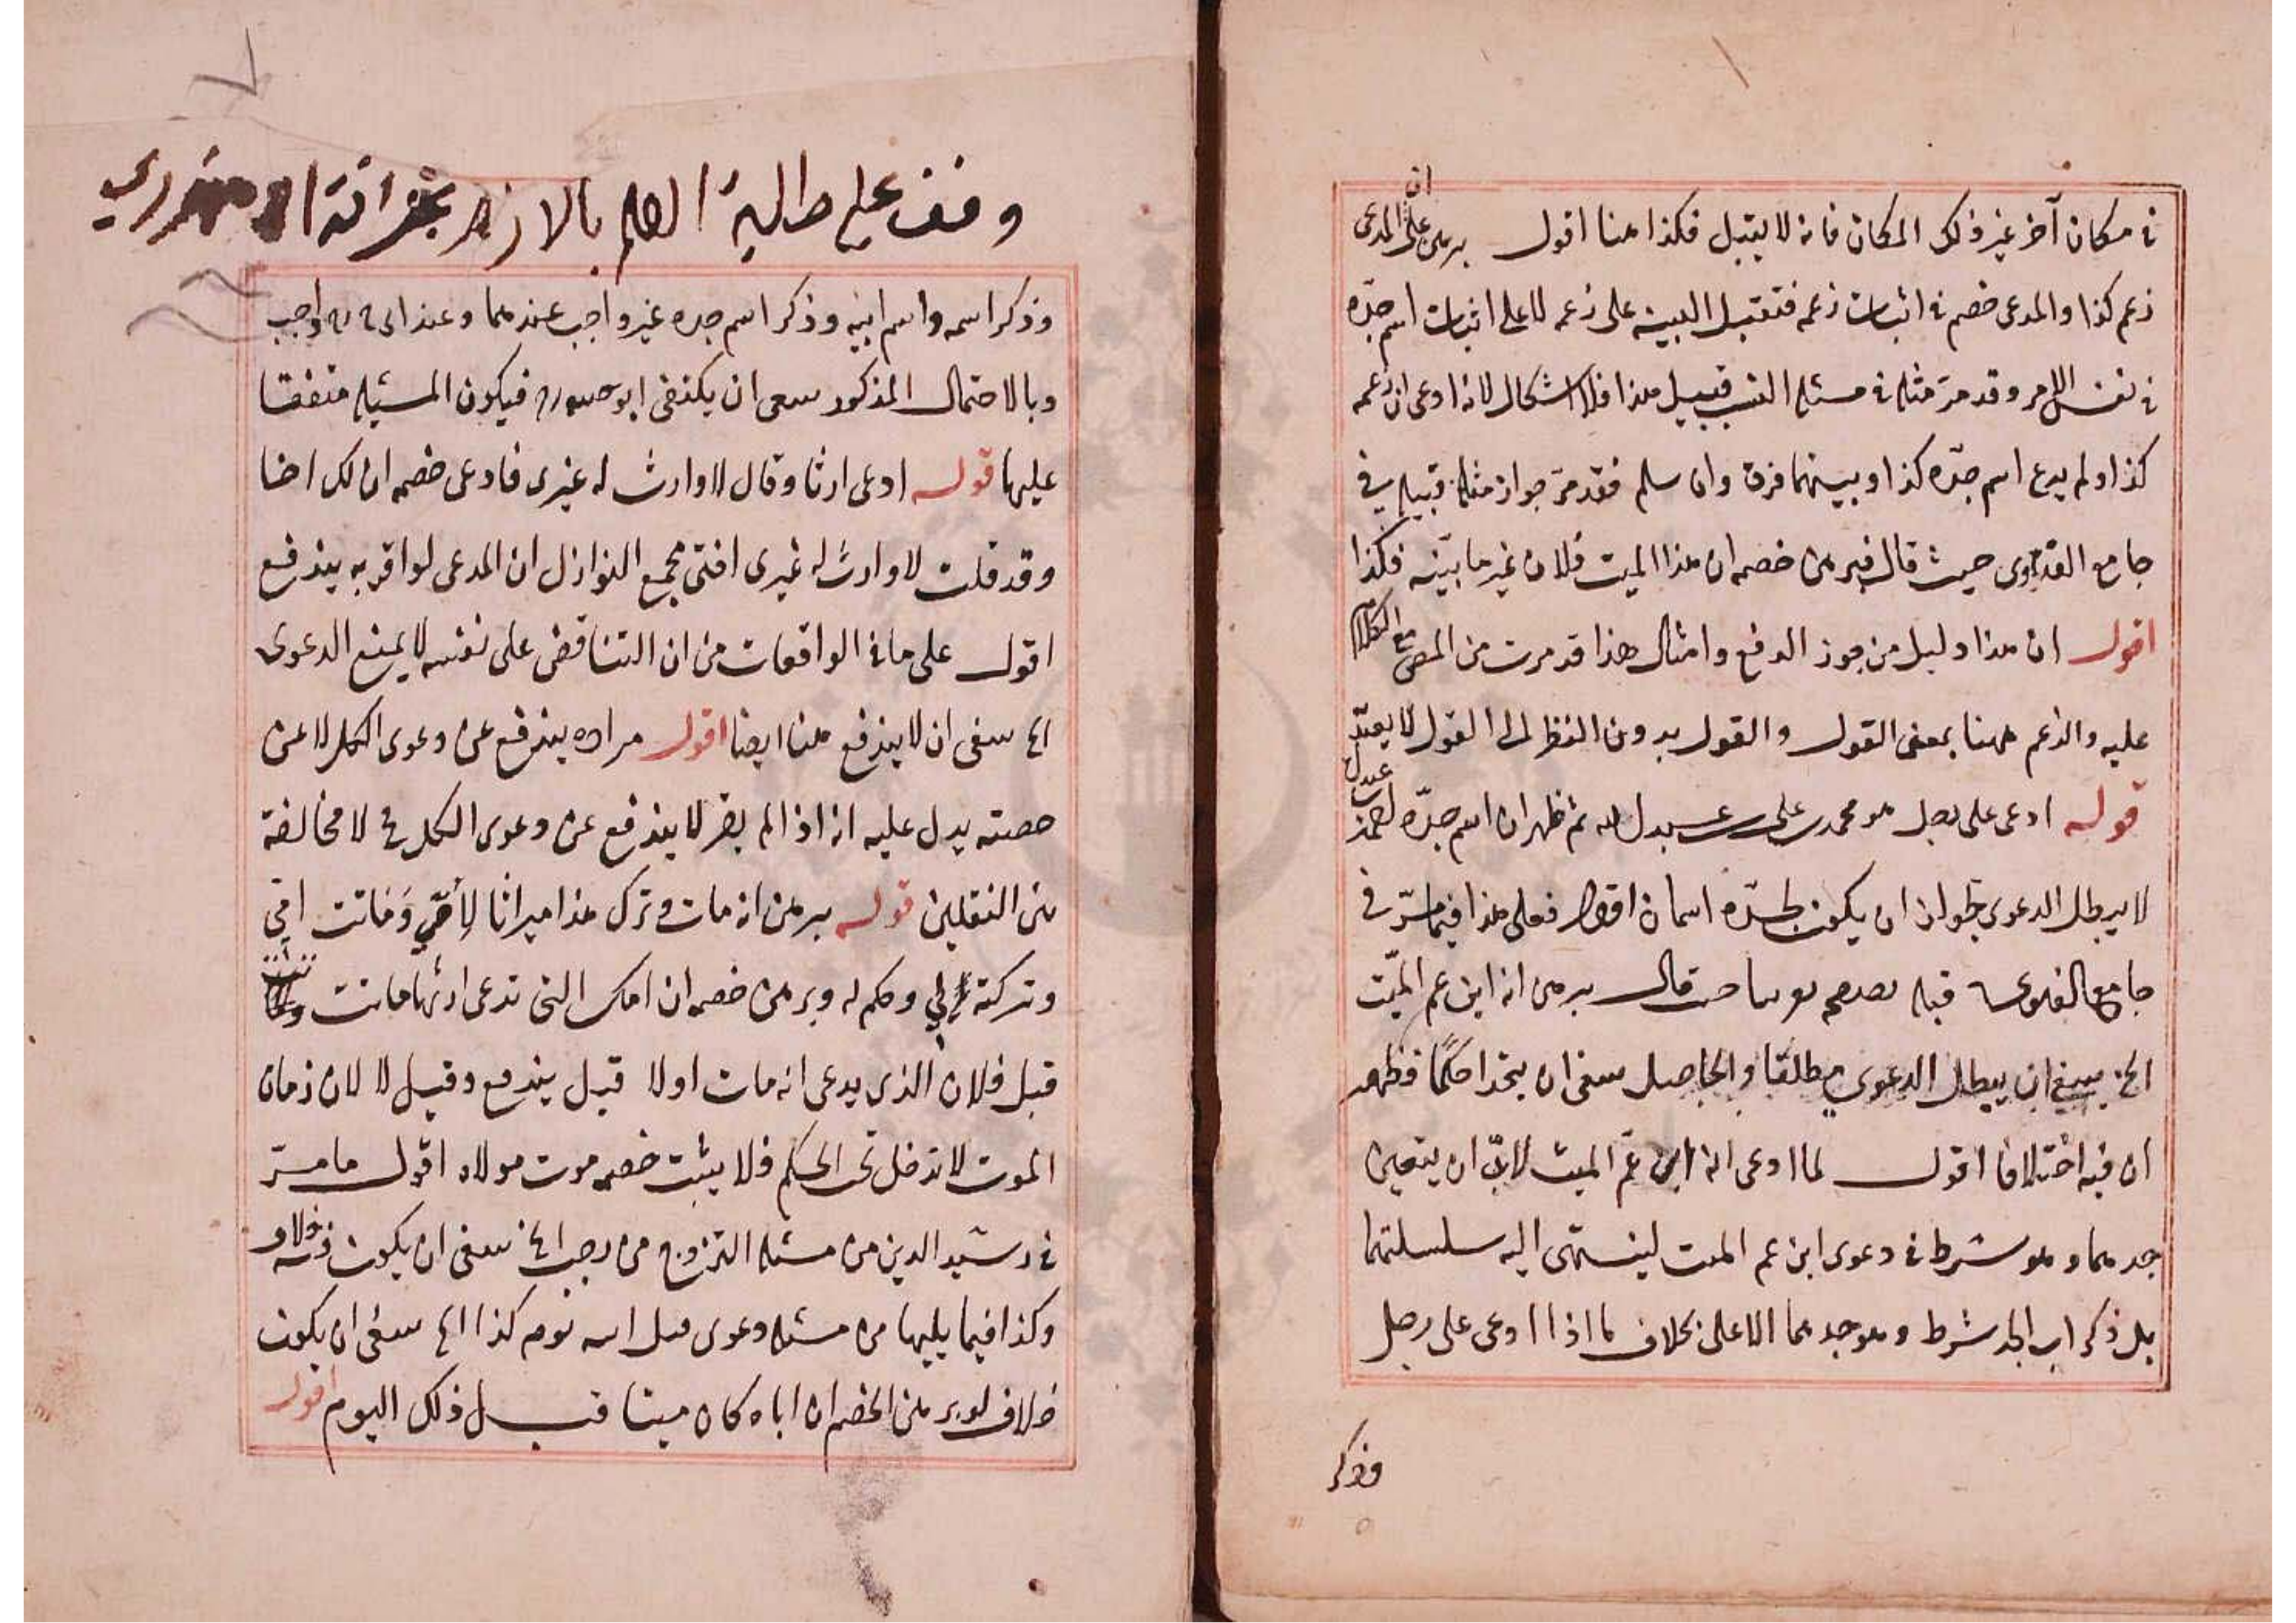 في مكان آخر غير ذلك المكان فانه لا يقبل فكذا هنا اقول برهن على ان المدعى
زعم كذا والمدعى خصم في اثبات زعمه فتقبل البينة على زعمه لا على اثبات اسم جدّه
في نفس الامر وقد مرّ مثله في مسئلة النسب قبيل هذا فلا اشكال لانه ادعى ان زعمه
كذا ولم يدع اسم جدّه كذا وبينهما فرق وان سلم فقد مرّ جواز مثله قبيله في
جامع الفتاوى حيث قال فبرهن خصمه ان هذا الميت فلان غير ما بيّنه فكذا
اقول ان هذا دليل من جوز الدفع وامثال هذا قد مرت من المص مع الكلام
عليه والزعم ههنا بمعنى القول والقول بدون النظر الى القول لا يعتدّ
قوله ادعى على رجل هو محمد بن على بن عبدل الله ثم ظهر ان اسم جدّه احمد
لا يبطل الدعوى لجواز ان يكون لجدّه اسمان اقول فعلى هذا فيما مرّ في
جامع الفتاوى قبله قال برهن انه ابن عم الميّت
الخ ينبغي ان يبطل الدعوى مطلقا والحاصل ينبغى ان يتحدا حكما فظهر
ان فيه اختلافا اقول لما ادعى انه ابن عمّ الميت لابدّ ان يتعين
جدهما وهو شرط في دعوى ابن عم الميت لينتهى اليه سلسلتهما
بل ذكر اب الجد شرط وهو جدهما الاعلى بخلاف ما اذا ادعى على رجل
فذكر
وقف على طلبة العلم بالازهر بخزانة
وذكر اسمه واسم ابيه وذكر اسم جده غير واجب عندهما وعند ابى ح ره واجب
وبالاحتمال المذكور ينبغى ان يكتفى ابو فيكون المسئلة متفقا
عليها قوله ادعى ارثا وقال لا وارث له غيرى فادعى خصمه ان لك اخا
وقد قلت لا وارث له غيرى افتى مجمع النوازل ان المدعى لو اقر به يندفع
اقول على ما في الواقعات من ان التناقض على نفسه لا يمنع الدعوى
الخ ينبغى ان لا يندفع هنا ايضا اقول مراده يندفع عن دعوى الكل لا عن
حصته يدل عليه انه اذا لم يقر لا يندفع عن دعوى الكل فح لا مخالفة
بين النقلين قوله برهن انه مات وترك هذا ميراثا لأمّي وماتت امّي
وتركته لي وحكم له وبرهن خصمه ان امك التى تدعى ارثها ماتت
قبل فلان الذى يدعى انه مات اولا قيل يندفع وقيل لا لان زمان
الموت لا تدخل تحت الحكم فلا يثبت خصمه موت مولاه اقول ما مرّ
في رشيد الدين من مسئلة التزوج من رجب الخ ينبغى ان يكون فيه خلاف
وكذا فيما يليها من مسئلة دعوى قتل ابيه يوم كذا الخ ينبغى ان يكون
خلاف لو برهن الخصم ان اباه كان ميتا قبل ذلك اليوم اقول